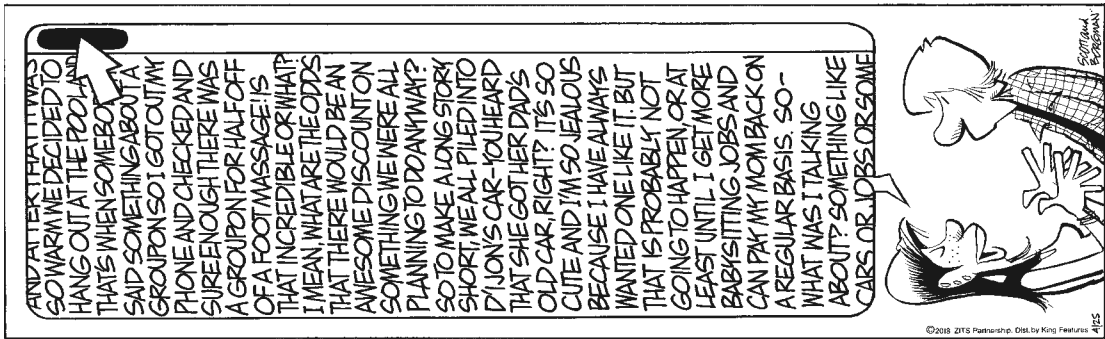 AND AFTER THAT IT WAS
SO WARM WE DECIDED TO
HANG OUT AT THE POOL AND
THAT'S WHEN SOMEBOD
SAID SOMETHING ABOUT A
GROUPON SO I GOT OUT MY
PHONE AND CHECKED AND
SURE ENOUGH THERE WAS
A GROUPON FOR HALF OFF
OF A FOOT MASSAGE! IS
THAT INCREDIBLE OR WHAT?
I MEAN, WHAT ARE THE ODDS
THAT THERE WOULD BE AN
AWESOME DISCOUNT ON
SOMETHING WE WERE ALL
PLANNING TO DO ANYWAY?
SO TO MAKE A LONG STORY
SHORT, WE ALL PILED INTO
D'IJON'S CAR-YOU HEARD
THAT SHE GOT HER DAD'S
OLD CAR, RIGHT? IT'S SO
CUTE AND I'M SO JEALOUS
BECAUSE I HAVE ALWAYS
WANTED ONE LIKE IT. BUT
THAT IS PROBABLY NOT
GOING TO HAPPEN OR AT
LEAST UNTIL I GET MORE
BABYSITTING JOBS AND
CAN PAY MY MOM BACK ON
A REGULAR BASIS. SO-
WHAT WAS I TALKING
ABOUT? SOMETHING LIKE
CARS, OR JOBS, OR SOME
SCOTT and
BORGMAN
©2018 ZITS Partnership. Dist. by King Features
4/25